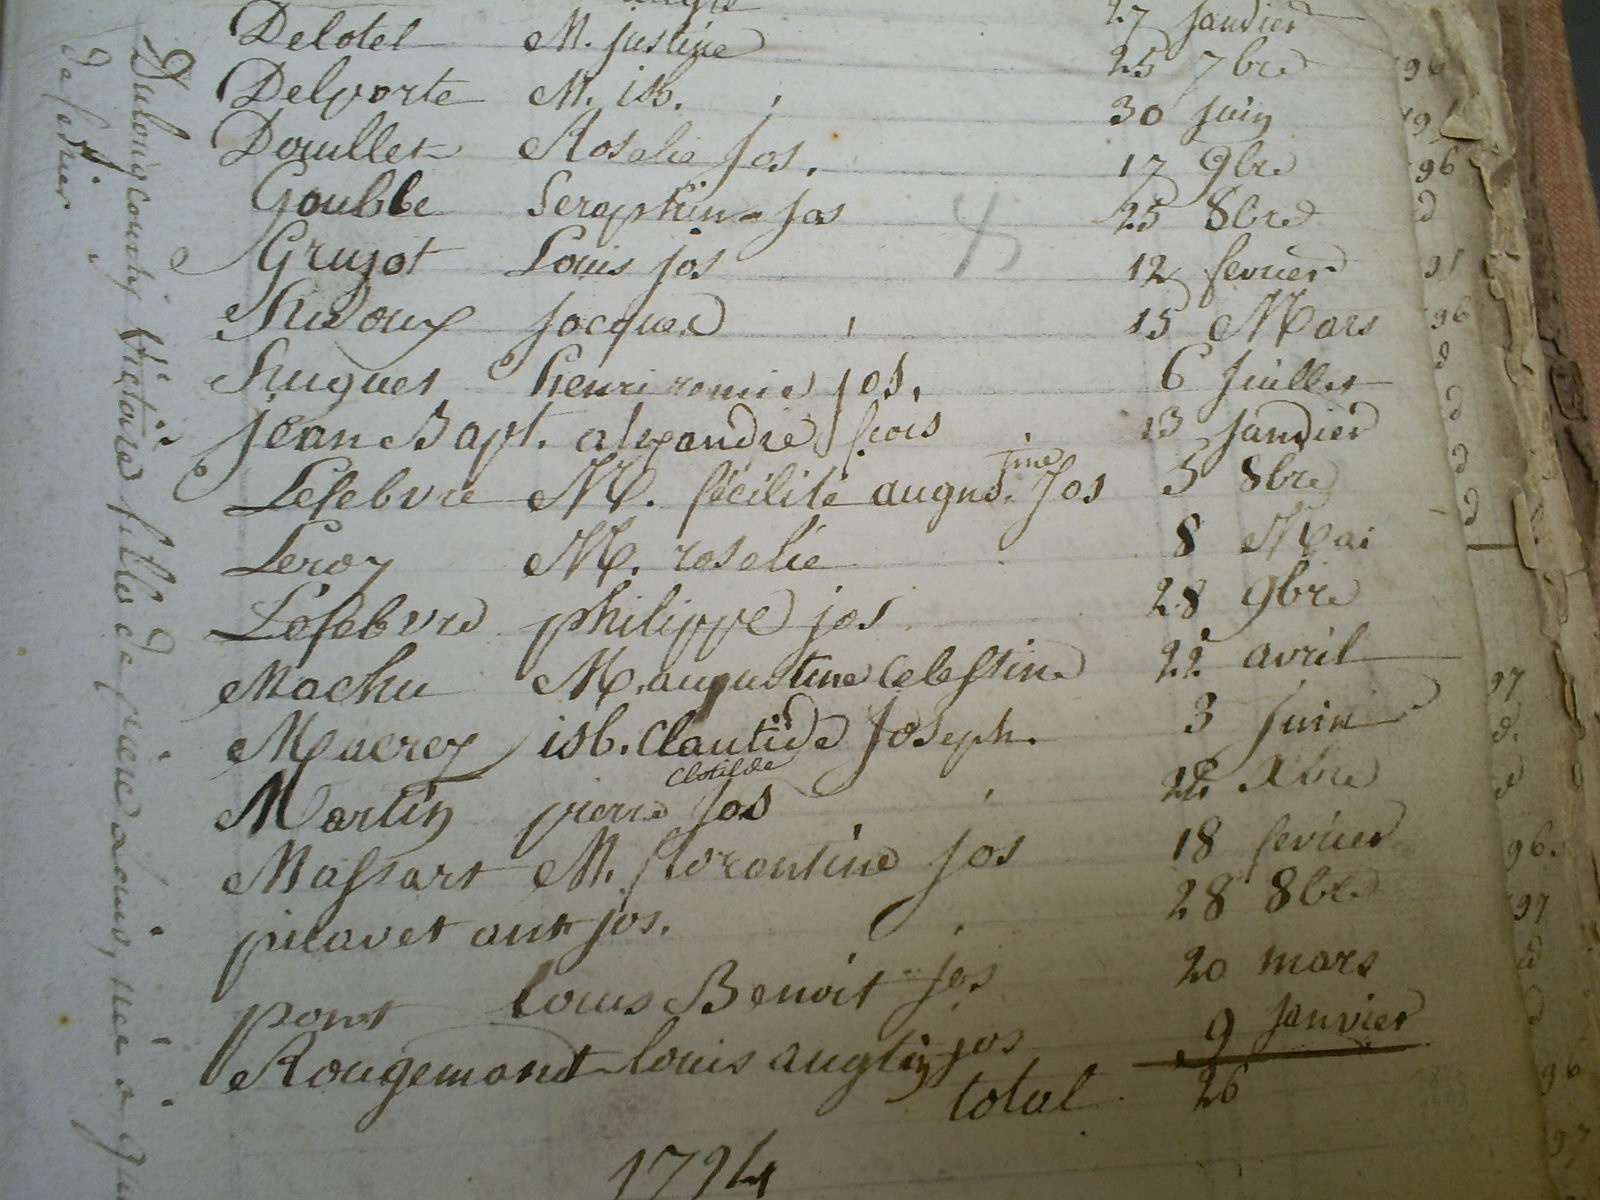 27 Janvier
Delotel M. Justine 25 7bre
Delporte M. isb. 30 Juin
Douillet Roselie Jos. 17 9bre
Goubbe Seraphin Jos 25 8bre
Gruzot Louis jos 12 fevrier
hidoux Jacques 15 Mars
huguet henri romie jos. 6 Juillet
jean Bapt. alexandre frois 13 Janvier
Lefebvre M. fécilité augus. tine Jos 5 8bre
Leroy M. roselie 8 Mai
Lefebvre philippe jos 28 9bre
Machu M. augustine Celestine 22 avril
Macrez isb. Clautide Joseph. 3 Juin
Clotilde
Martin pierre Jos 22 Xbre
Massart M. florentine jos 18 fevrier
pilavet ant jos. 28 8bre
pont louis Benoit jos 20 mars
Rougemont louis augtin jos 9 Janvier
total 26
1794
96
96
d
91
96
d
d
d
d
97
d.
d
96.
97
d
d
96
97
victoire fille de pierre Louis, née a